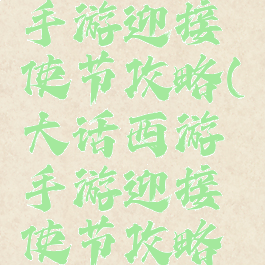 手游迎接
使节攻略(
大话西游
手游迎接
使节攻略